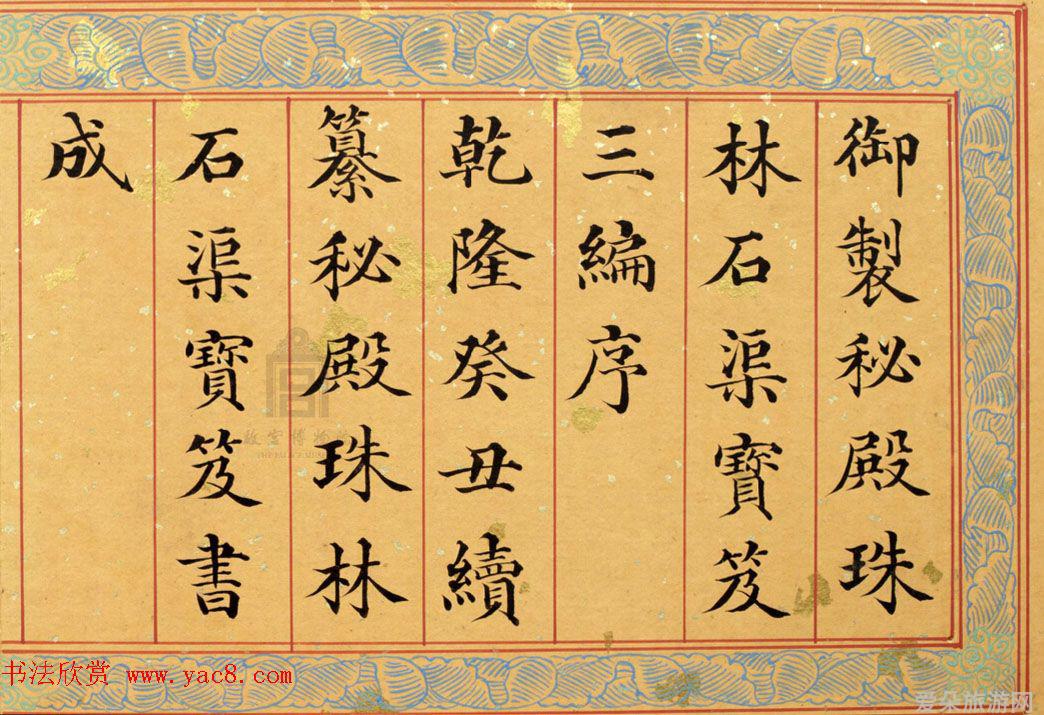 御製秘殿珠
林石渠寶笈
三編序
乾隆癸丑續
纂秘殿珠林
石渠寶笈書
成
故宮博物院
书法欣赏 www.yac8.com
爱朵旅游网